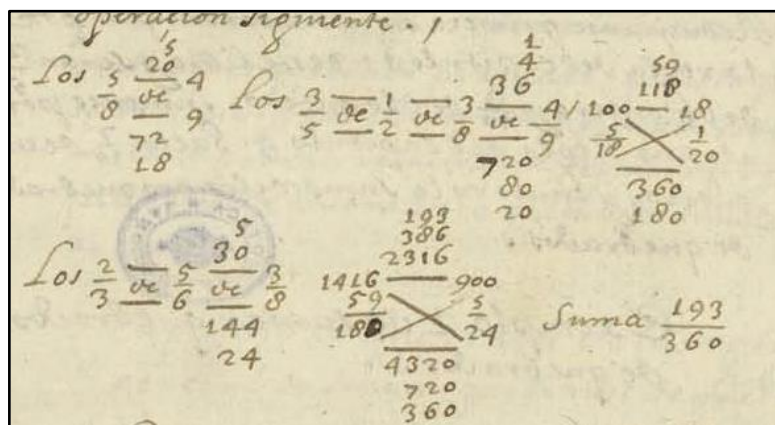 operación siguiente.
5
20
Los 5/8 de 4/9
72
18
1
4
36
Los 3/5 de 1/2 de 3/8 de 4/9
720
80
20
59
118
100 — 18
5/18 1/20
360
180
5
30
Los 2/3 de 5/6 de 3/8
144
24
193
386
2316
1416 — 900
59/180 5/24
4320
720
360
Suma 193/360